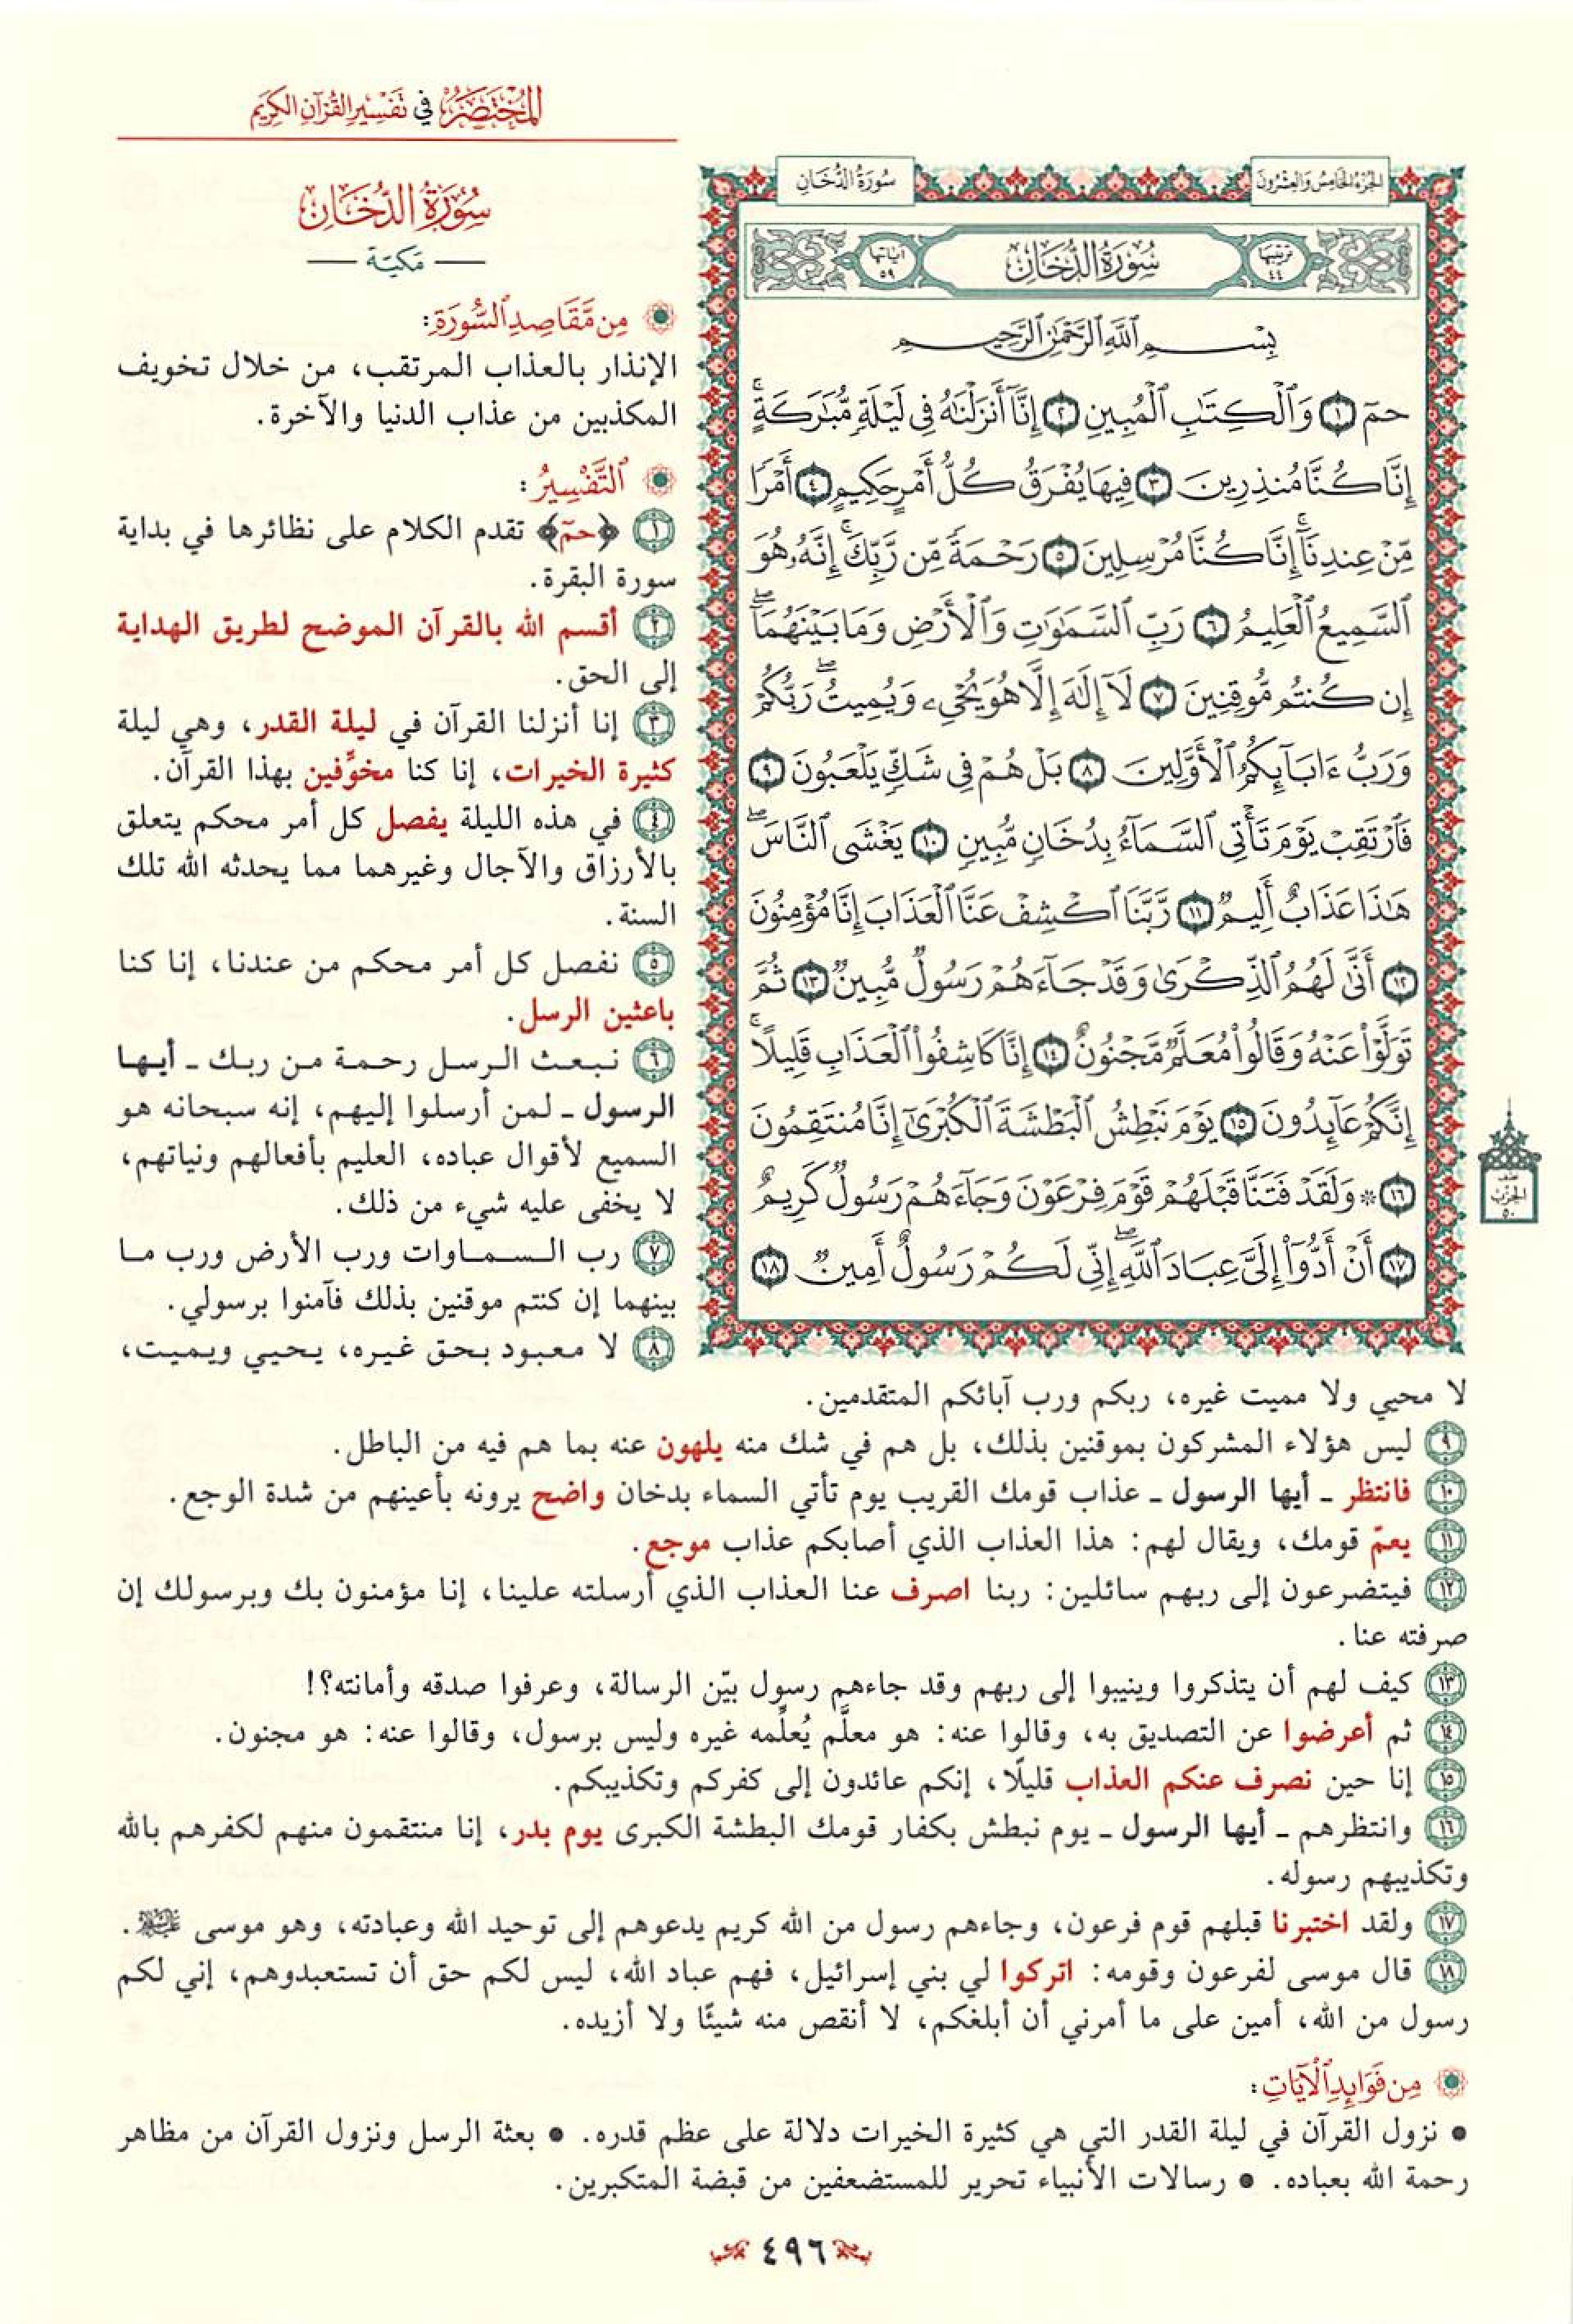 المختصر في تفسير القرآن الكريم
الجزء الخامس والعشرون
سورة الدخان
ترتيبها ٤٤
سُورَةُ الدُّخَانِ
آياتها ٥٩
بِسْمِ ٱللَّهِ ٱلرَّحْمَٰنِ ٱلرَّحِيمِ
حمٓ ١ وَٱلْكِتَٰبِ ٱلْمُبِينِ ٢ إِنَّآ أَنزَلْنَٰهُ فِى لَيْلَةٍ مُّبَٰرَكَةٍ ۚ
إِنَّا كُنَّا مُنذِرِينَ ٣ فِيهَا يُفْرَقُ كُلُّ أَمْرٍ حَكِيمٍ ٤ أَمْرًا
مِّنْ عِندِنَآ ۚ إِنَّا كُنَّا مُرْسِلِينَ ٥ رَحْمَةً مِّن رَّبِّكَ ۚ إِنَّهُۥ هُوَ
ٱلسَّمِيعُ ٱلْعَلِيمُ ٦ رَبِّ ٱلسَّمَٰوَٰتِ وَٱلْأَرْضِ وَمَا بَيْنَهُمَآ ۖ
إِن كُنتُم مُّوقِنِينَ ٧ لَآ إِلَٰهَ إِلَّا هُوَ يُحْىِۦ وَيُمِيتُ ۖ رَبُّكُمْ
وَرَبُّ ءَابَآئِكُمُ ٱلْأَوَّلِينَ ٨ بَلْ هُمْ فِى شَكٍّ يَلْعَبُونَ ٩
فَٱرْتَقِبْ يَوْمَ تَأْتِى ٱلسَّمَآءُ بِدُخَانٍ مُّبِينٍ ١٠ يَغْشَى ٱلنَّاسَ ۖ
هَٰذَا عَذَابٌ أَلِيمٌ ١١ رَّبَّنَا ٱكْشِفْ عَنَّا ٱلْعَذَابَ إِنَّا مُؤْمِنُونَ
١٢ أَنَّىٰ لَهُمُ ٱلذِّكْرَىٰ وَقَدْ جَآءَهُمْ رَسُولٌ مُّبِينٌ ١٣ ثُمَّ
تَوَلَّوْا۟ عَنْهُ وَقَالُوا۟ مُعَلَّمٌ مَّجْنُونٌ ١٤ إِنَّا كَاشِفُوا۟ ٱلْعَذَابِ قَلِيلًا ۚ
إِنَّكُمْ عَآئِدُونَ ١٥ يَوْمَ نَبْطِشُ ٱلْبَطْشَةَ ٱلْكُبْرَىٰٓ إِنَّا مُنتَقِمُونَ
١٦ ۞ وَلَقَدْ فَتَنَّا قَبْلَهُمْ قَوْمَ فِرْعَوْنَ وَجَآءَهُمْ رَسُولٌ كَرِيمٌ
١٧ أَنْ أَدُّوٓا۟ إِلَىَّ عِبَادَ ٱللَّهِ ۖ إِنِّى لَكُمْ رَسُولٌ أَمِينٌ ١٨
نصف
الحزب
٥٠
سُورَةُ الدُّخَانِ
مَكيّة
مِن مَّقَاصِدِ ٱلسُّورَةِ:
الإنذار بالعذاب المرتقب، من خلال تخويف
المكذبين من عذاب الدنيا والآخرة.
ٱلتَّفْسِيرُ:
١ ﴿حمٓ﴾ تقدم الكلام على نظائرها في بداية
سورة البقرة.
٢ أقسم الله بالقرآن الموضح لطريق الهداية
إلى الحق.
٣ إنا أنزلنا القرآن في ليلة القدر، وهي ليلة
كثيرة الخيرات، إنا كنا مخوِّفين بهذا القرآن.
٤ في هذه الليلة يفصل كل أمر محكم يتعلق
بالأرزاق والآجال وغيرهما مما يحدثه الله تلك
السنة.
٥ نفصل كل أمر محكم من عندنا، إنا كنا
باعثين الرسل.
٦ نبعث الرسل رحمة من ربك ـ أيها
الرسول ـ لمن أرسلوا إليهم، إنه سبحانه هو
السميع لأقوال عباده، العليم بأفعالهم ونياتهم،
لا يخفى عليه شيء من ذلك.
٧ رب السماوات ورب الأرض ورب ما
بينهما إن كنتم موقنين بذلك فآمنوا برسولي.
٨ لا معبود بحق غيره، يحيي ويميت،
لا محيي ولا مميت غيره، ربكم ورب آبائكم المتقدمين.
٩ ليس هؤلاء المشركون بموقنين بذلك، بل هم في شك منه يلهون عنه بما هم فيه من الباطل.
١٠ فانتظر ـ أيها الرسول ـ عذاب قومك القريب يوم تأتي السماء بدخان واضح يرونه بأعينهم من شدة الوجع.
١١ يعمّ قومك، ويقال لهم: هذا العذاب الذي أصابكم عذاب موجع.
١٢ فيتضرعون إلى ربهم سائلين: ربنا اصرف عنا العذاب الذي أرسلته علينا، إنا مؤمنون بك وبرسولك إن
صرفته عنا.
١٣ كيف لهم أن يتذكروا وينيبوا إلى ربهم وقد جاءهم رسول بيّن الرسالة، وعرفوا صدقه وأمانته؟!
١٤ ثم أعرضوا عن التصديق به، وقالوا عنه: هو معلَّم يُعلِّمه غيره وليس برسول، وقالوا عنه: هو مجنون.
١٥ إنا حين نصرف عنكم العذاب قليلًا، إنكم عائدون إلى كفركم وتكذيبكم.
١٦ وانتظرهم ـ أيها الرسول ـ يوم نبطش بكفار قومك البطشة الكبرى يوم بدر، إنا منتقمون منهم لكفرهم بالله
وتكذيبهم رسوله.
١٧ ولقد اختبرنا قبلهم قوم فرعون، وجاءهم رسول من الله كريم يدعوهم إلى توحيد الله وعبادته، وهو موسى عليه السلام.
١٨ قال موسى لفرعون وقومه: اتركوا لي بني إسرائيل، فهم عباد الله، ليس لكم حق أن تستعبدوهم، إني لكم
رسول من الله، أمين على ما أمرني أن أبلغكم، لا أنقص منه شيئًا ولا أزيده.
مِن فَوَائِدِ ٱلْآيَاتِ:
• نزول القرآن في ليلة القدر التي هي كثيرة الخيرات دلالة على عظم قدره. • بعثة الرسل ونزول القرآن من مظاهر
رحمة الله بعباده. • رسالات الأنبياء تحرير للمستضعفين من قبضة المتكبرين.
٤٩٦